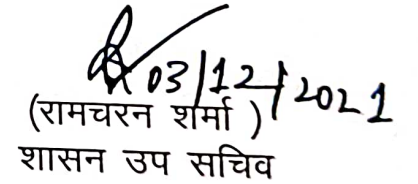 03/12/2021
(रामचरन शर्मा )
शासन उप सचिव